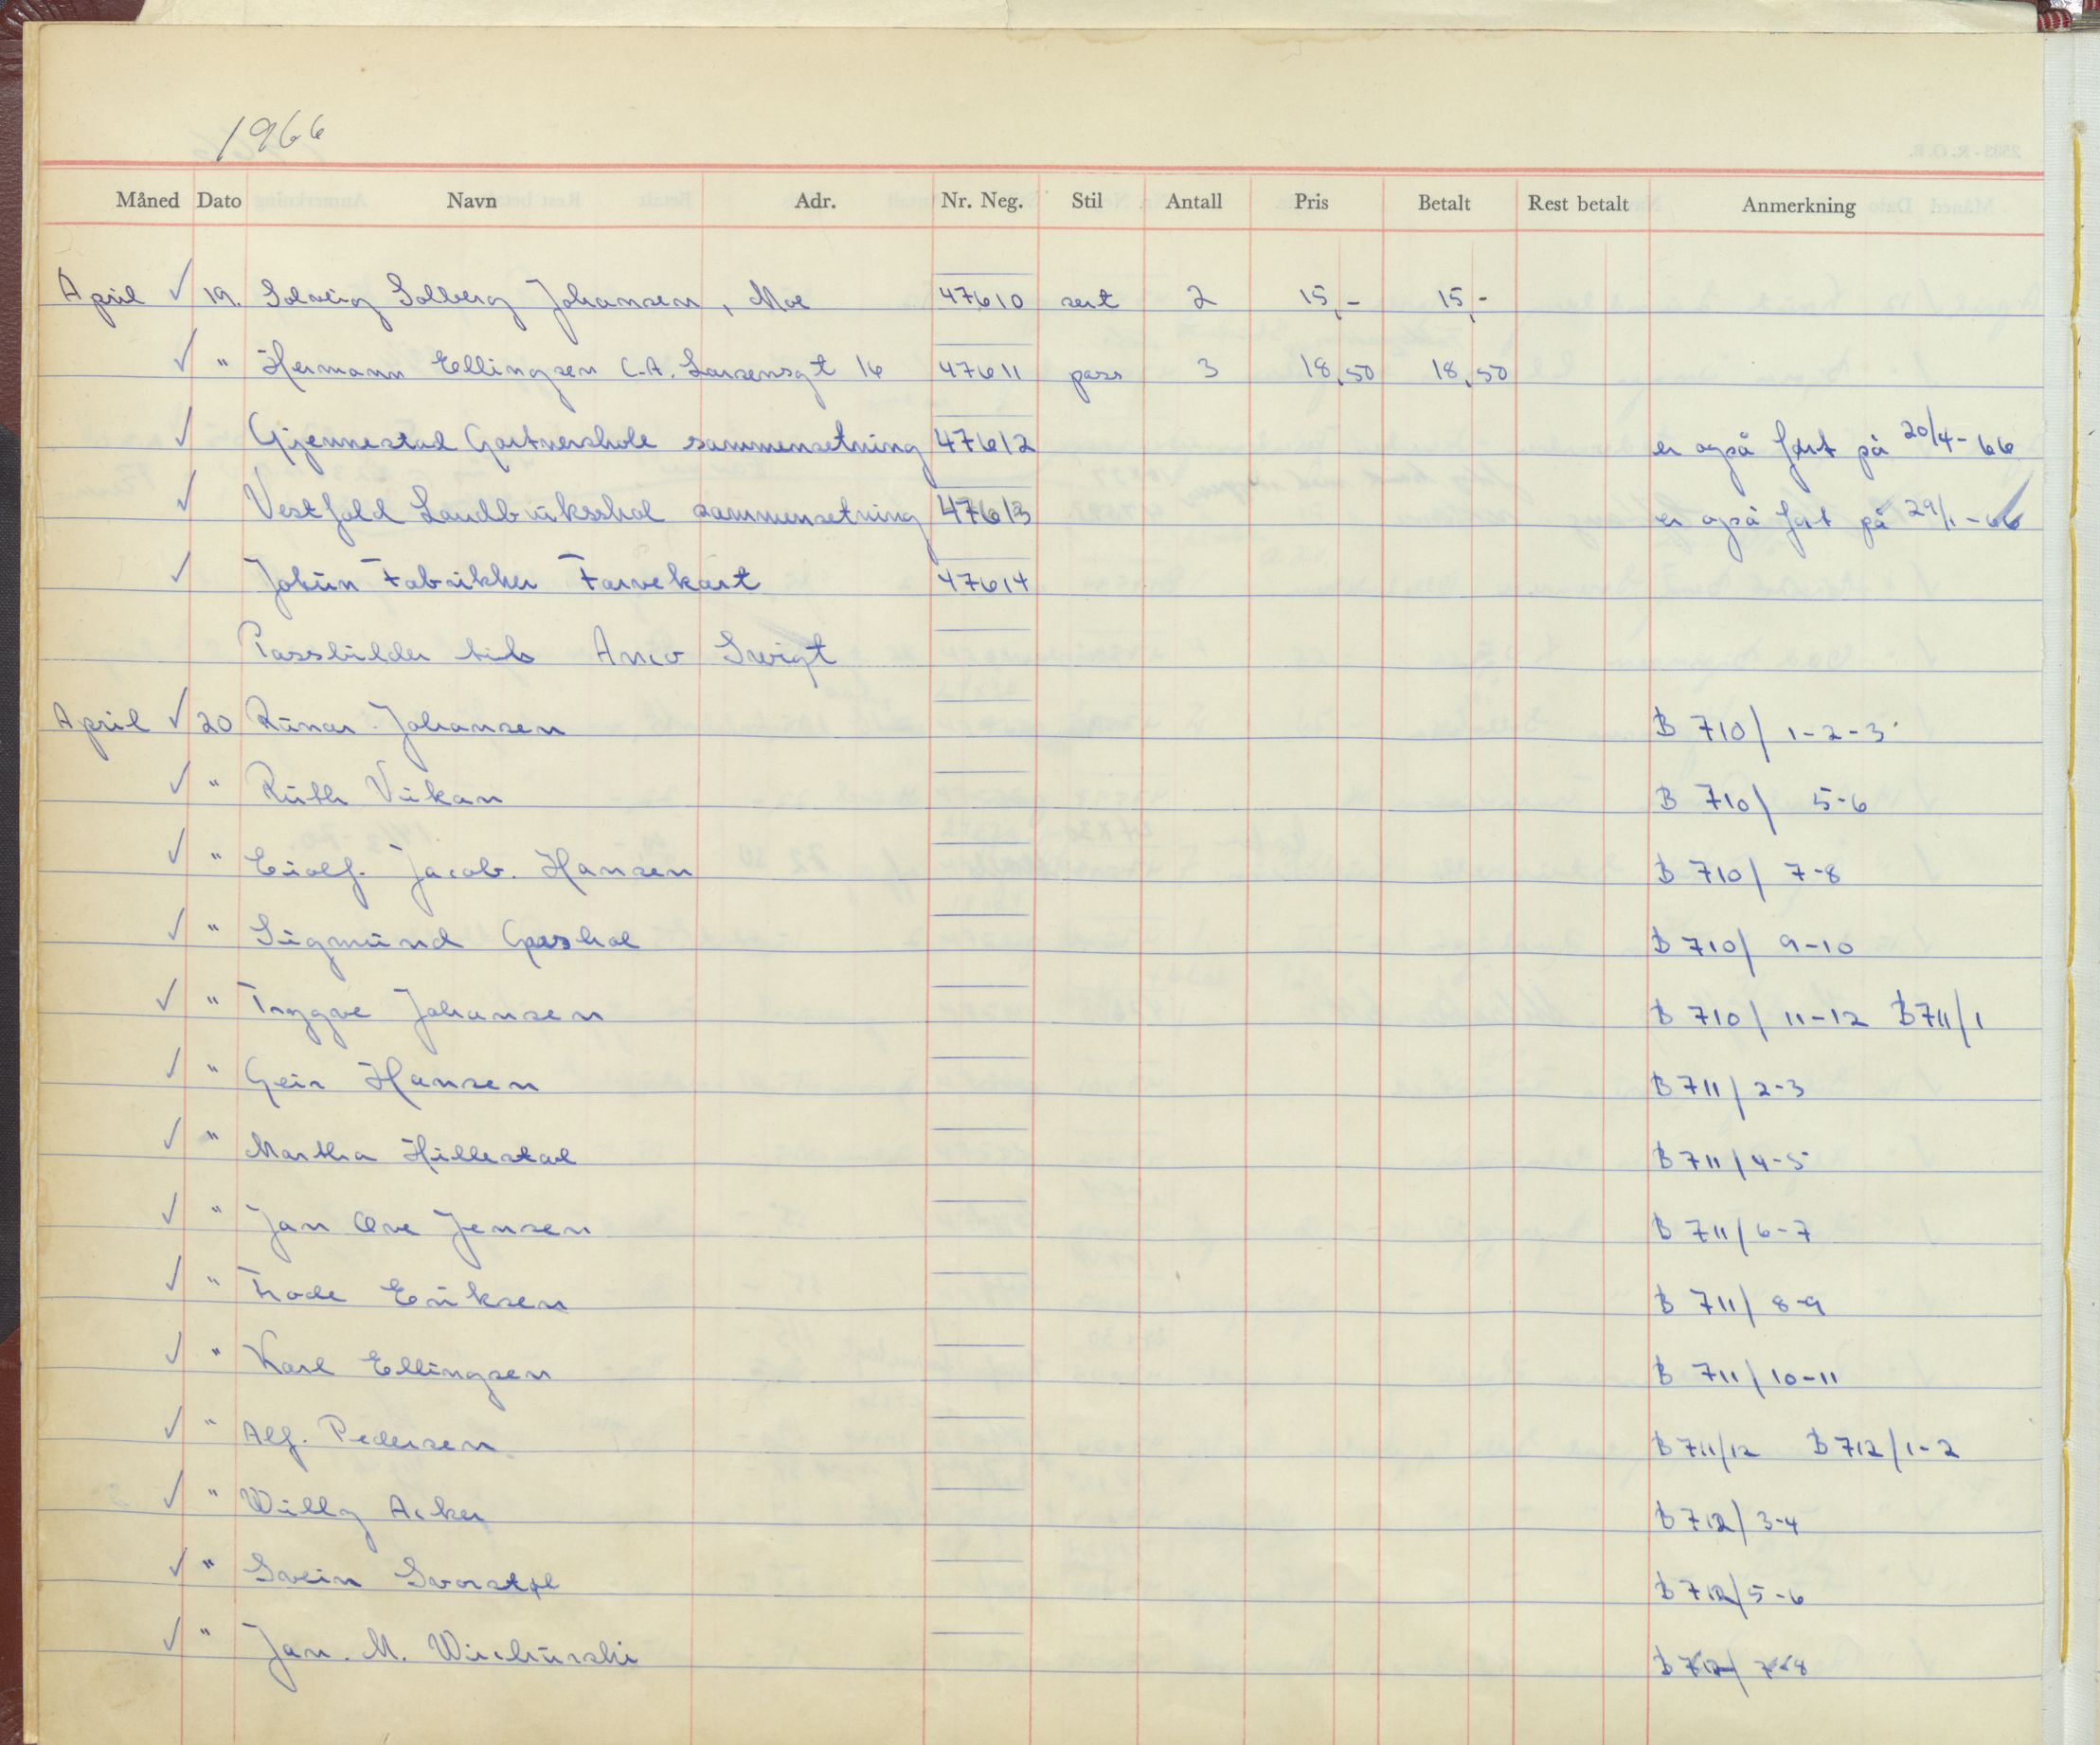 1966
Måned Dato Navn Adr. Nr. Neg. Stil Antall Pris Betalt Rest betalt Anmerkning
April ✓ 19. Solveig Solberg Johansen, Moe 47610 sert 2 15,- 15,-
✓ " Hermann Ellingsen C.A. Larsensgt 16 47611 pass 3 18,50 18,50
✓ Gjennestad Gartnerskole sammensetning 47612 er også ført på 20/4-66
✓ Vestfold Landbruksskol sammensetning 47613 er også ført på 29/1-66
✓ Jotun Fabrikker Farvekart 47614
Passbilder til Anco
April ✓ 20 Runar Johansen B 710/ 1-2-3
✓ " Ruth Vikan B 710/ 5-6
✓ " Eiolf. Jacob. Hansen B 710/ 7-8
✓ " Sigmund B 710/ 9-10
✓ " Trygve Johansen B 710/ 11-12 B711/1
✓ " Geir Hansen B 711/ 2-3
✓ " Martha Hillestad B 711/4-5
✓ " Jan Ove Jensen B 711/6-7
✓ " Frode Eriksen B 711/ 8-9
✓ " Karl Ellingsen B 711/10-11
✓ " Alf. Pedersen B 711/12 B 712/1-2
✓ " Willy Acker B 712/ 3-4
✓ " Svein B 712/5-6
✓ " Jan. M. B 712/ 7-8